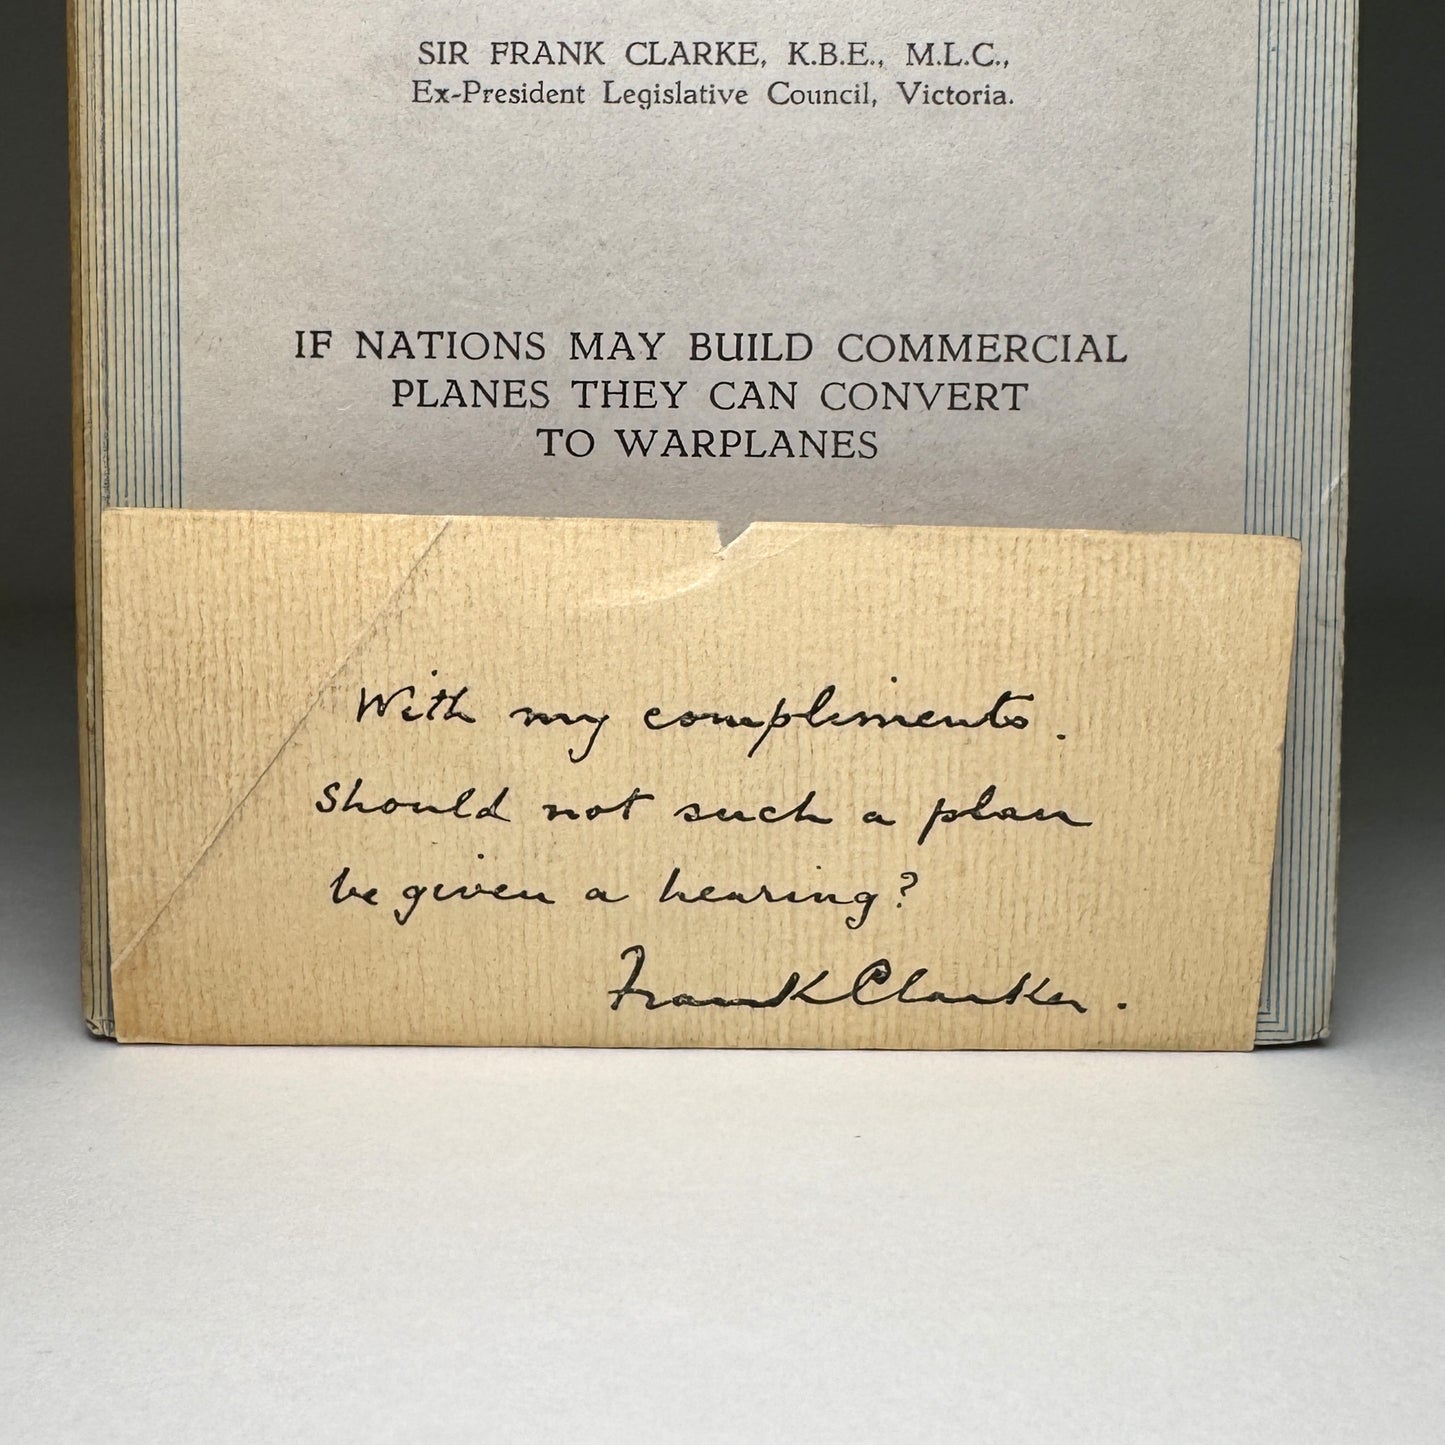 SIR FRANK CLARKE, K.B.E., M.L.C.,
Ex-President Legislative Council, Victoria.
IF NATIONS MAY BUILD COMMERCIAL
PLANES THEY CAN CONVERT
TO WARPLANES
With my compliments.
Should not such a plan
be given a hearing?
Frank Clarke.